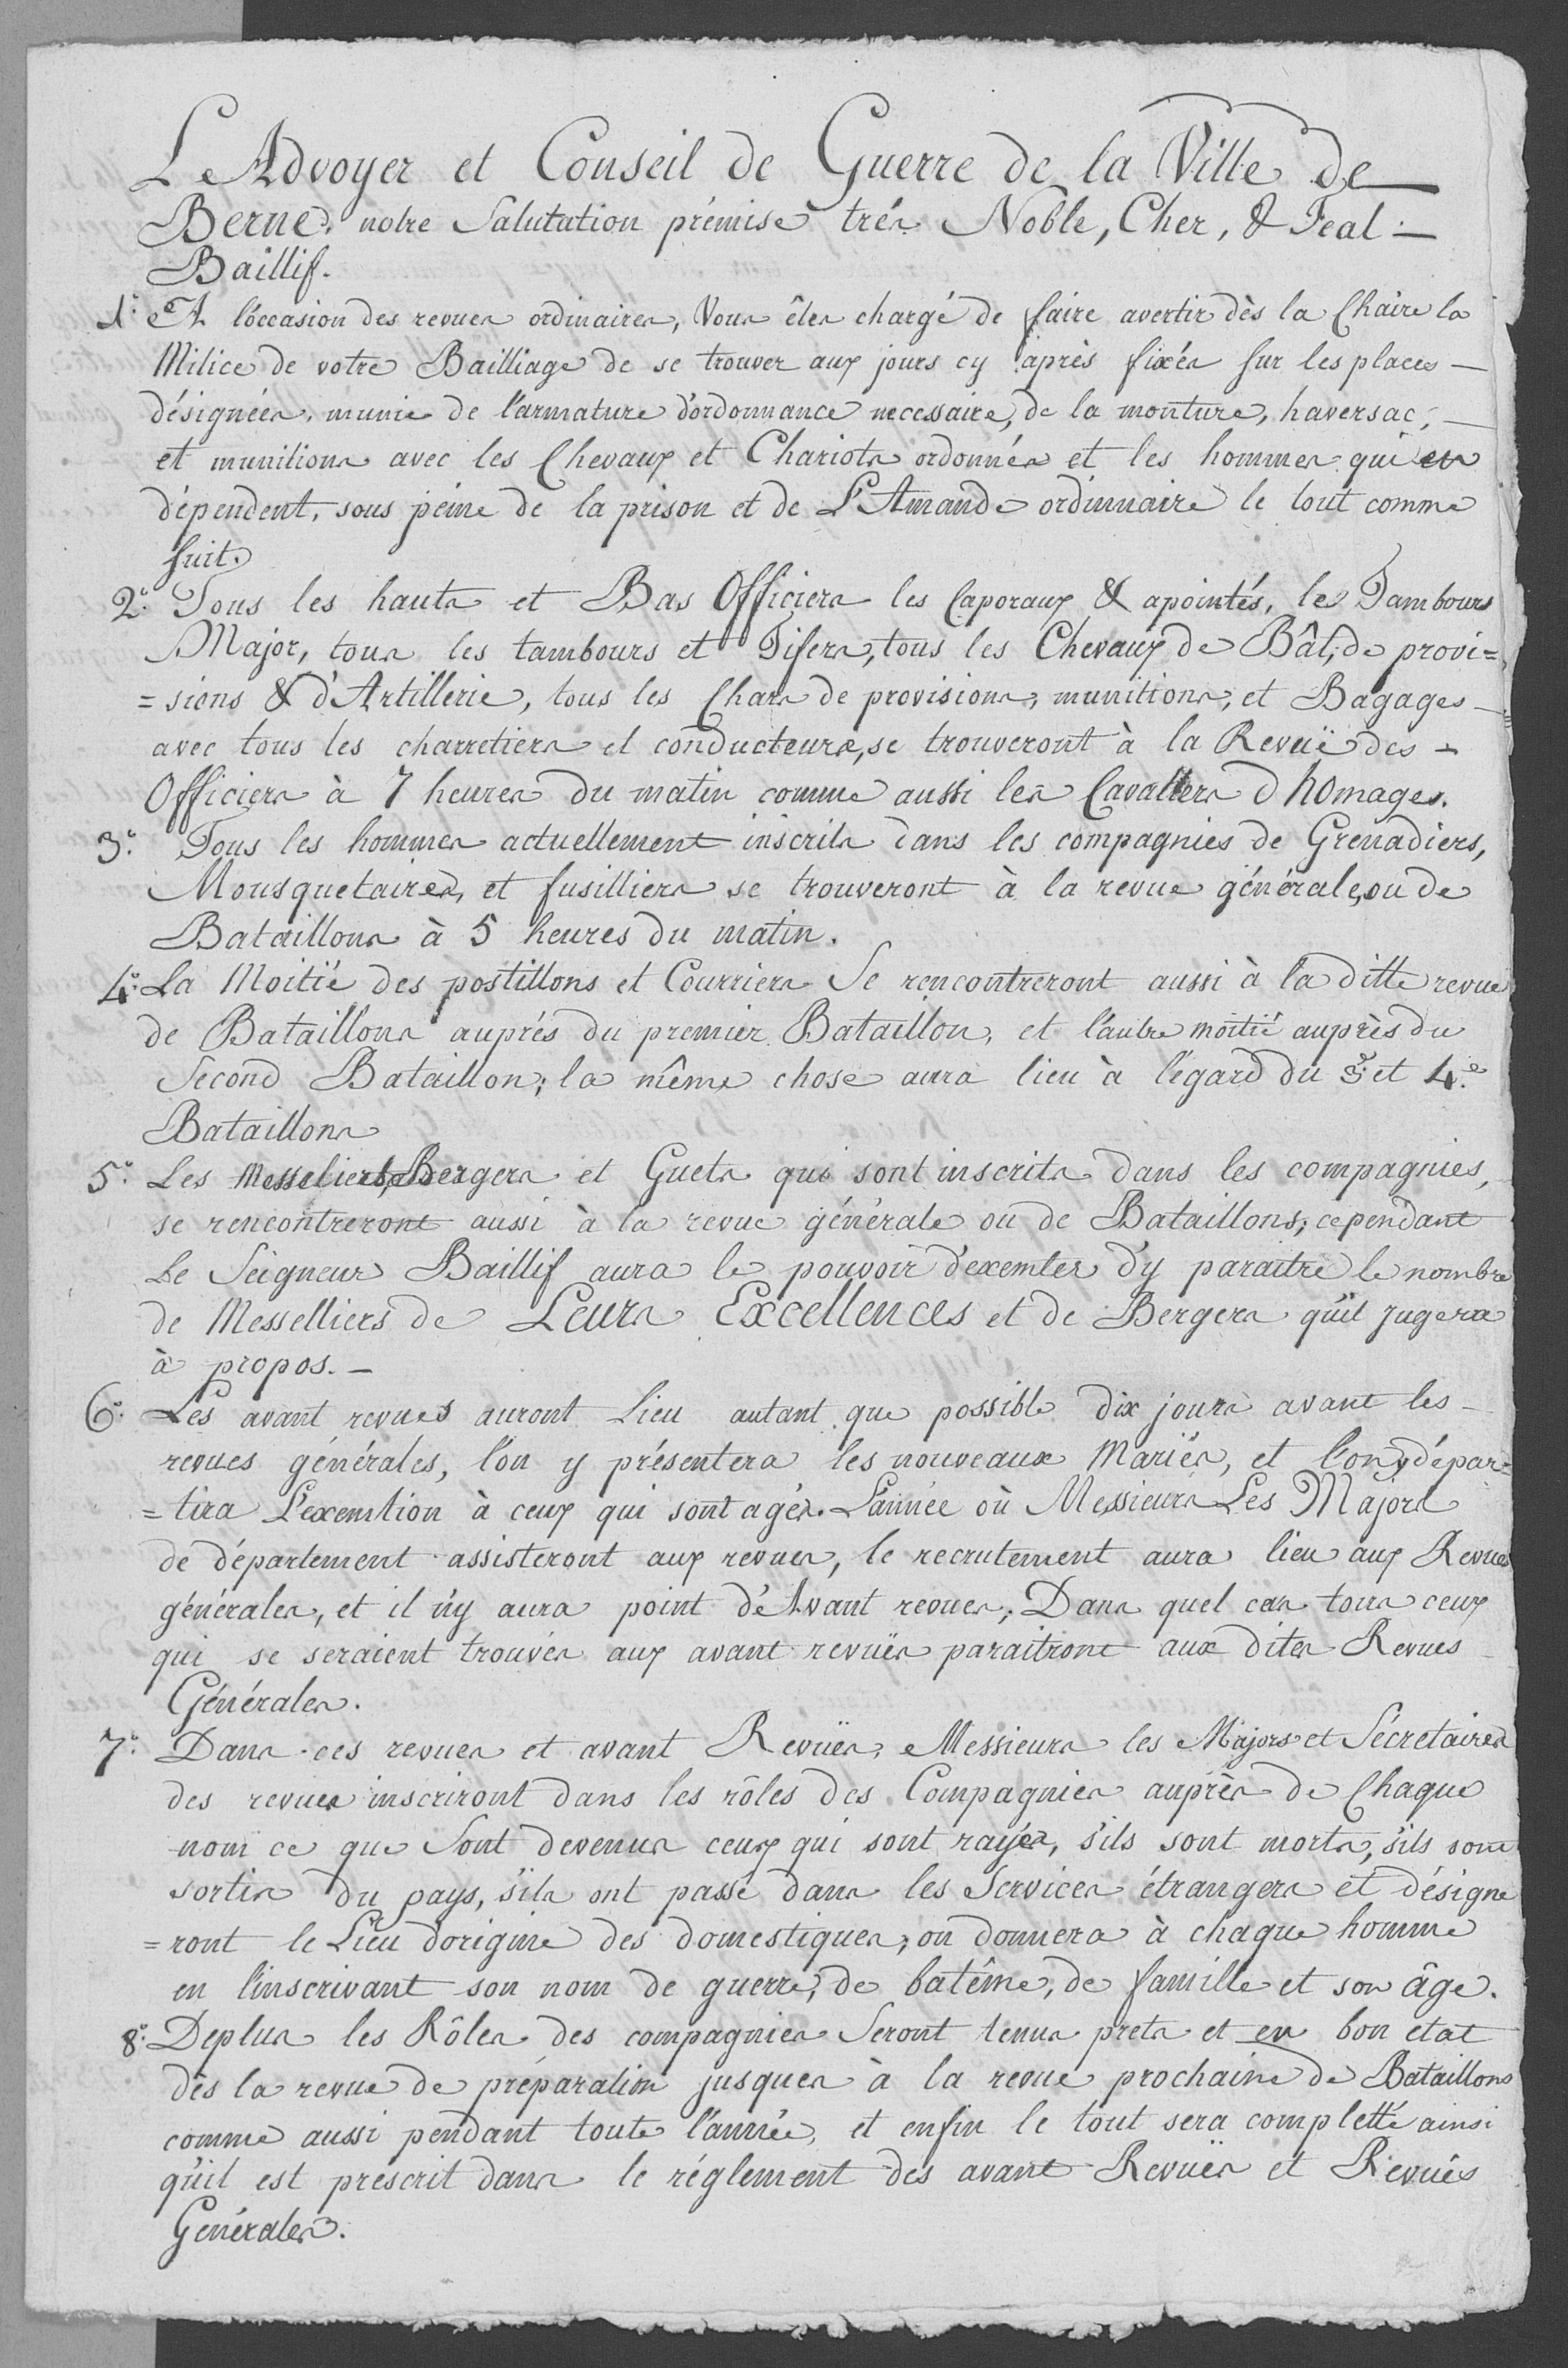 L'Advoyer et Conseil de Guerre de la Ville de
Berne, notre Salutation prémise trés Noble, Cher, & Feal
Baillif.
1.° A l'occasion des revues ordinaires, Vous êtes chargé de faire avertir dès la Chaire la
Milice de votre Bailliage de se trouver aux jours cy après fixés sur les places
désignées, munie de l'armature d'ordonnance necessaire, de la monture, haversac,
et munitions avec les Chevaux et Chariots ordonnés et les hommes qui en
dépendent, sous peine de la prison et de L'Amande ordinnaire le tout comme
suit.
2.° Tous les hauts et Bas Officiers les Caporaux & apointés, les Tambours
Major, tous les tambours et Fifers, tous les Chevaux de Bât, de provi=
=sions & d'Artillerie, tous les Chars de provisions, munitions, et Bagages
avec tous les charretiers et conducteurs, se trouveront à la Revuë des
Officiers à 7 heures du matin comme aussi les Cavalliers d'homages.
3.° Tous les hommes actuellement inscrits dans les compagnies de Grenadiers,
Mousquetaires, et fusilliers se trouveront à la revue générale, ou de
Bataillons à 5 heures du matin.
4.° La Moitié des postillons et Courriers Se rencontreront aussi à la ditte revue
de Bataillons auprés du premier Bataillon, et l'autre moitié auprès du
Second Bataillon; la même chose aura lieu à l'égard du 3.e et 4.e
Bataillons
5.° Les Messeliers, Bergers et Guets qui sont inscrits dans les compagnies,
se rencontreront aussi à la revue générale ou de Bataillons; cependant
Le Seigneur Baillif aura le pouvoir d'exemter d'y paraitre le nombre
de Messelliers de Leurs Excellences et de Bergers qu'il jugera
à propos.
6.° Les avant revues auront Lieu autant que possible dix jours avant les
revues générales, l'on y présentera les nouveaux Mariés, et l'on y dépar=
=tira L'exemtion à ceux qui sont agés. L'année où Messieurs Les Majors
de département assisteront aux revues, le recrutement aura lieu aux Revues
générales, et il n'y aura point d'Avant revues; Dans quel cas tous ceux
qui se seraient trouvés aux avant revuës paraitront aux dites Revues
Générales.
7.° Dans ces revues et avant Revuës, Messieurs les Majors et Sécretaires
des revues inscriront dans les rôles des Compagnies auprès de Chaque
nom ce que Sont devenus ceux qui sont rayés, s'ils sont morts, s'ils sont
sortis du pays, s'ils ont passé dans les Services étrangers et désigne
=ront le Lieu d'origine des domestiques; on donnera à chaque homme
en l'inscrivant son nom de guerre, de batême, de famille et son âge.
8.° Deplus les Rôles des compagnies Seront tenus prets et en bon état
dès la revue de préparation jusques à la revue prochaine de Bataillons
comme aussi pendant toute l'année, et enfin le tout sera completté ainsi
qu'il est prescrit dans le réglement des avant Revuës et Revuës
Générales.